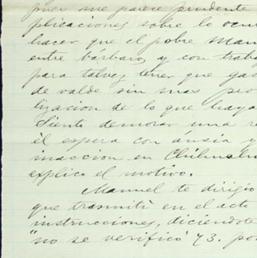 me parece prudente
plicaciones sobre lo ocur
hacer que el pobre Man
entre bárbaros y con trab
para talvez tener que gas
de valde sin mas pro
lizacion de lo que haya
Siento demorar una re
él espera con ánsia y
inaccion en Chihuahu
explico el motivo.
Manuel te dirigió
que trasmití en el acto
instrucciones, diciéndote
"no se verificó" 73. po